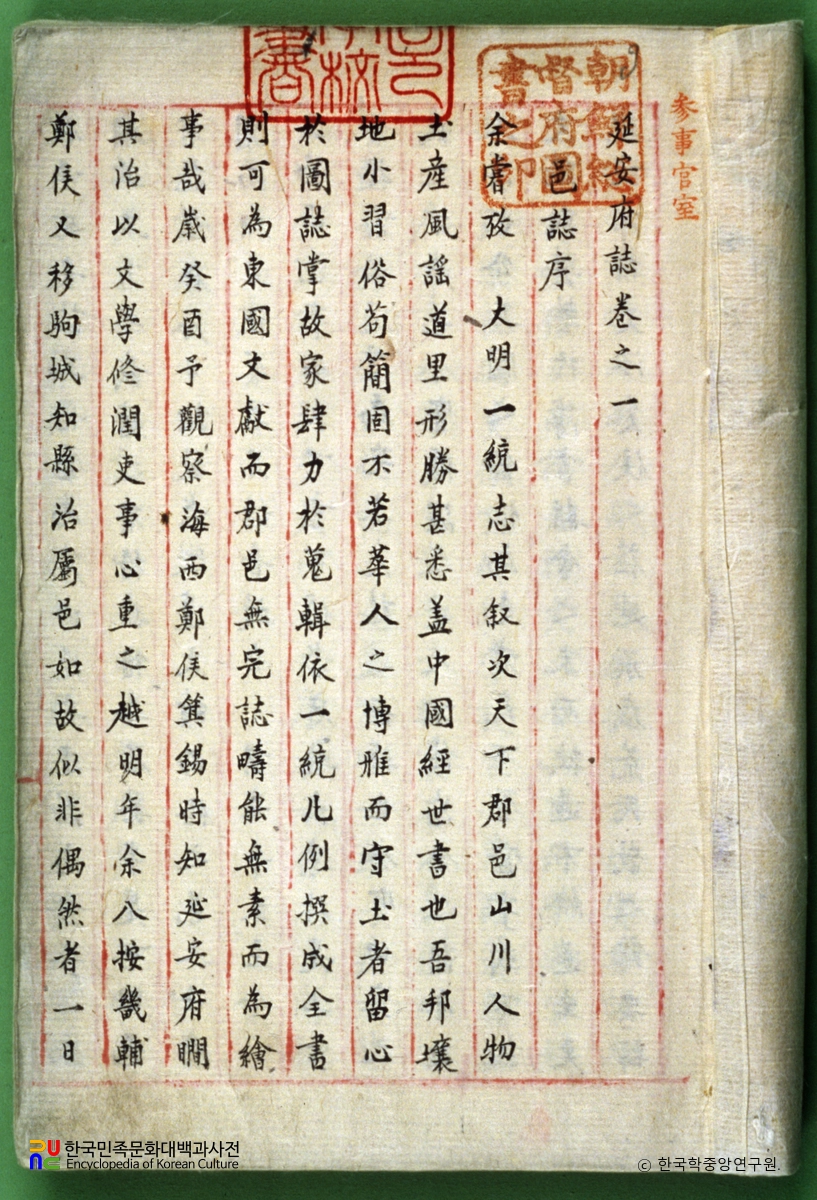 参事官室
朝鮮總督府圖書之印
延安府誌卷之一
邑誌序
余嘗攷 大明一統志其叙次天下郡邑山川人物
土産風謠道里形勝甚悉盖中國經世書也吾邦壤
地小習俗苟簡固不若華人之博雅而守土者留心
於圖誌掌故家肆力於蒐輯依一統凡例撰成全書
則可為東國文獻而郡邑無完誌疇能無素而為繪
事哉歲癸酉予觀察海西鄭侯箕錫時知延安府瞯
其治以文學修潤吏事心重之越明年余入按畿輔
鄭侯又移駒城知縣治屬邑如故似非偶然者一日
한국민족문화대백과사전
Encyclopedia of Korean Culture
© 한국학중앙연구원.